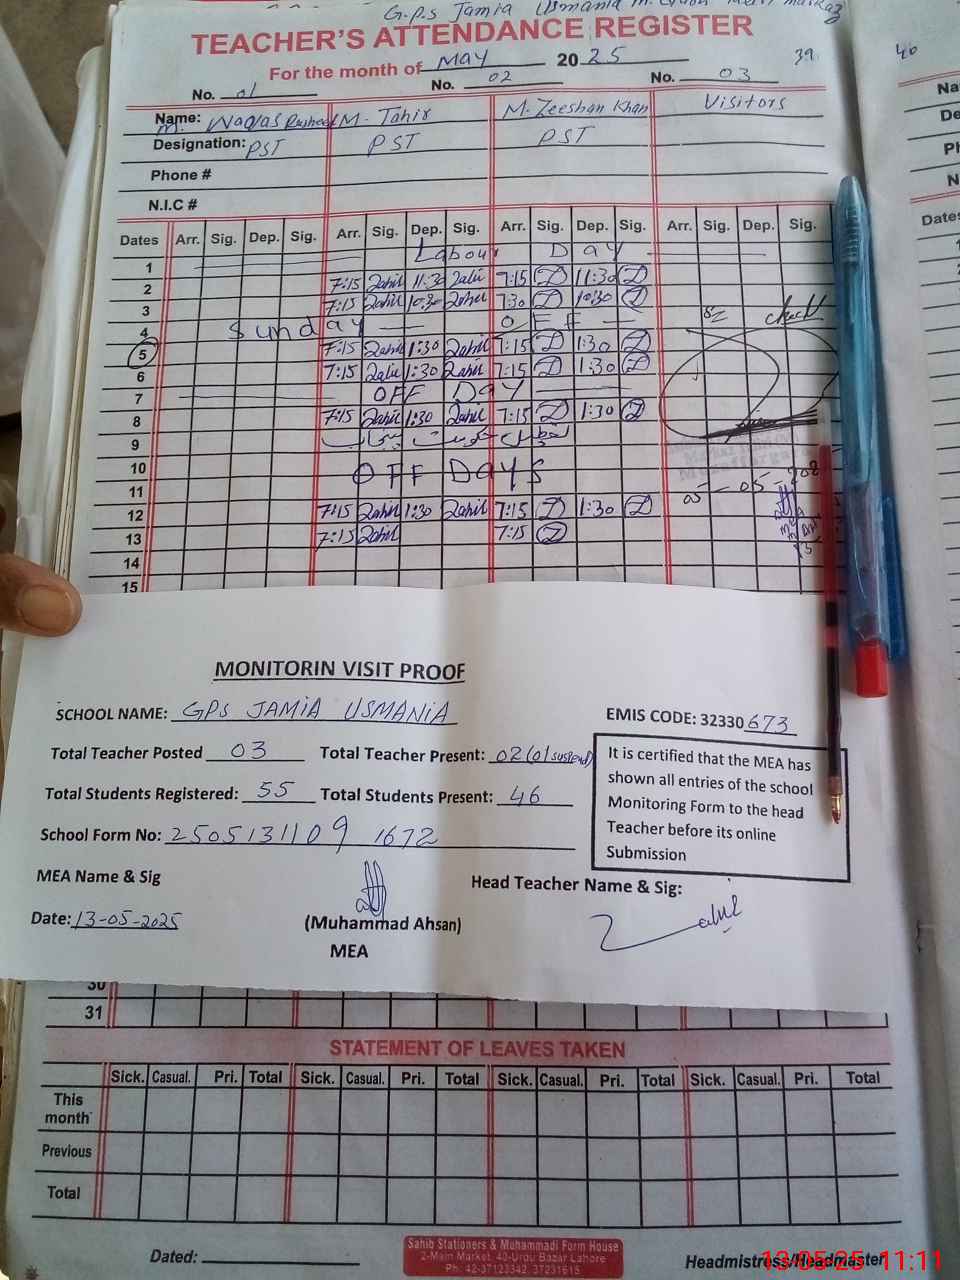 G.P.S Jamia Usmania
TEACHER'S ATTENDANCE REGISTER
For the month of May 2025
39
40
No. 01 No. 02 No. 03
Name: M. Waqas Rasheed M. Tahir M. Zeeshan Khan Visitors
Designation: PST PST PST
Phone #
N.I.C #
Dates Arr. Sig. Dep. Sig. Arr. Sig. Dep. Sig. Arr. Sig. Dep. Sig. Arr. Sig. Dep. Sig.
1 Labour Day
2 7:15 Zahil 11:30 Zahil 7:15 Z 11:30 Z
3 7:15 Zahil 10:30 Zahil 7:30 Z 10:30 Z
4 Sunday OFF
5 7:15 Zahil 1:30 Zahil 7:15 Z 1:30 Z
6 7:15 Zahil 1:30 Zahil 7:15 Z 1:30 Z
7 OFF Day
8 7:15 Zahil 1:30 Zahil 7:15 Z 1:30 Z
9
10 OFF DAYS
11
12 7:15 Zahil 1:30 Zahil 7:15 Z 1:30 Z
13 7:15 Zahil 7:15 Z
14
15
MONITORIN VISIT PROOF
SCHOOL NAME: GPS JAMIA USMANIA
EMIS CODE: 32330673
Total Teacher Posted 03 Total Teacher Present: 02 (01 suspend)
Total Students Registered: 55 Total Students Present: 46
School Form No: 2505131109 1672
It is certified that the MEA has
shown all entries of the school
Monitoring Form to the head
Teacher before its online
Submission
MEA Name & Sig
Head Teacher Name & Sig:
Date: 13-05-2025
(Muhammad Ahsan)
MEA
30
31
STATEMENT OF LEAVES TAKEN
Sick. Casual. Pri. Total Sick. Casual. Pri. Total Sick. Casual. Pri. Total Sick. Casual. Pri. Total
This
month
Previous
Total
Dated:
Sahib Stationers & Muhammadi Form House
2-Main Market, 40-Urdu Bazar Lahore
Ph: 42-37123342, 37231615
Headmistress/Headmaster
13-05-25 11:11